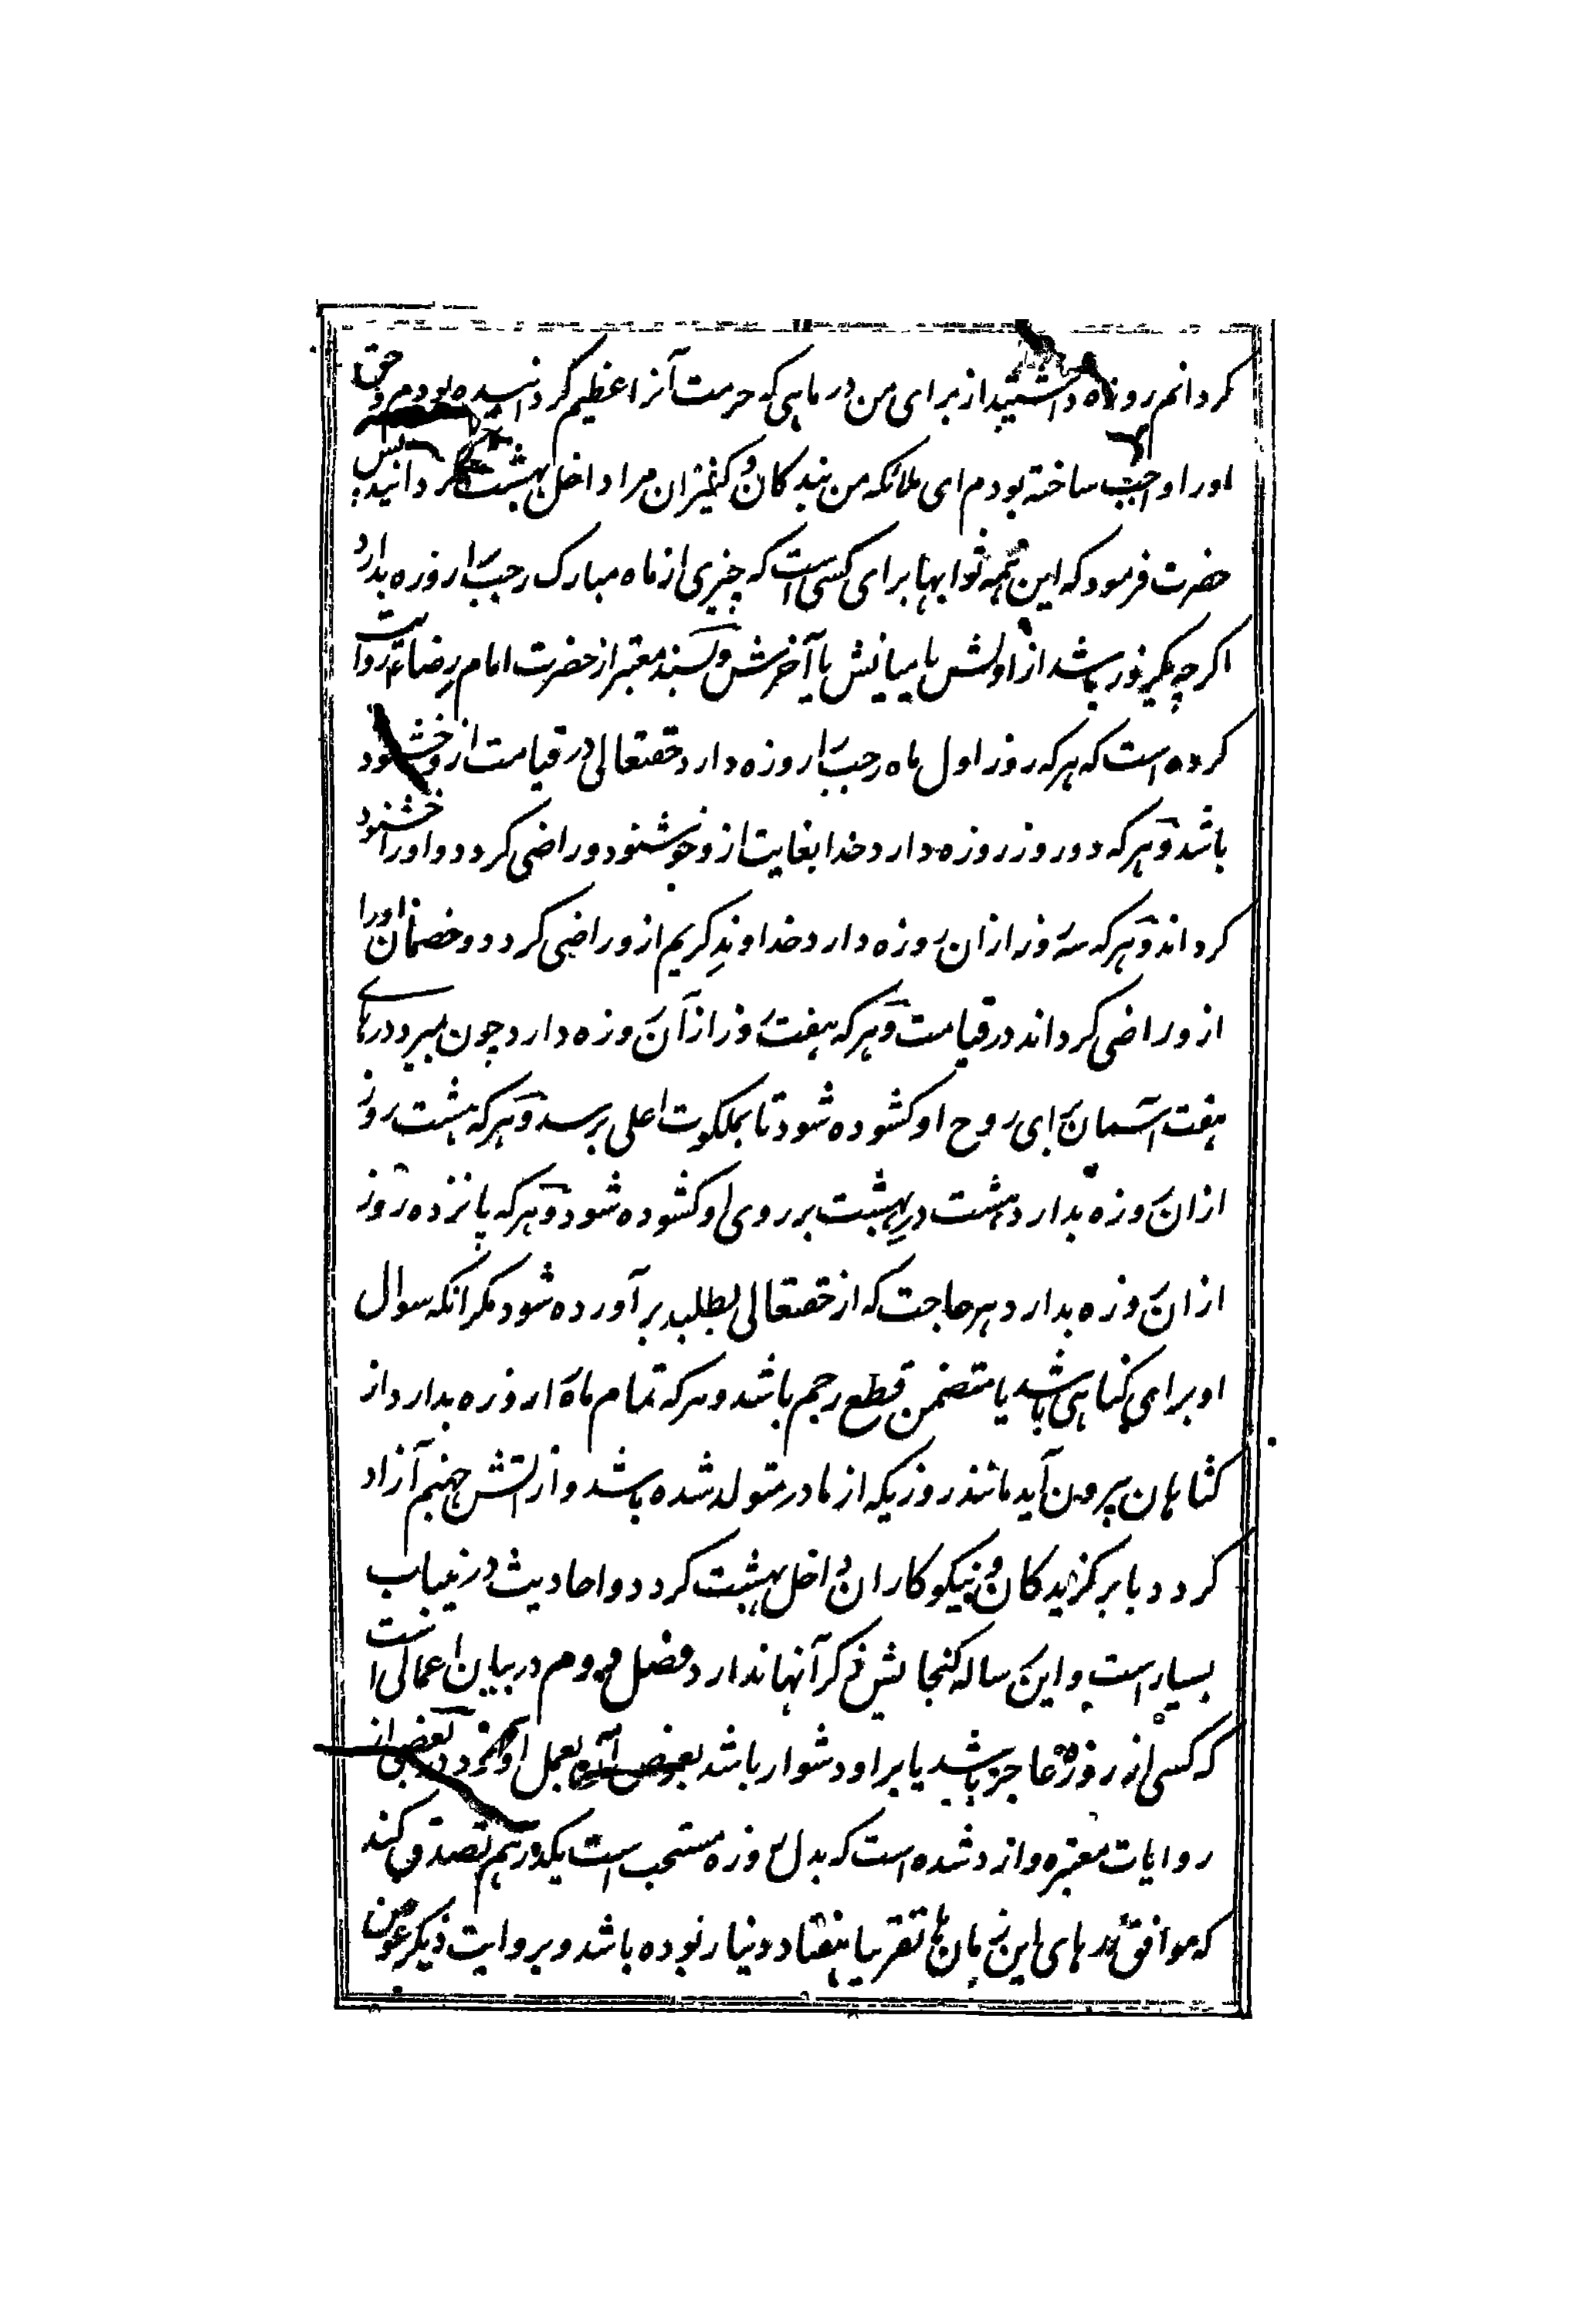 کردانم روزه داشتید از برای من در ماهی که حرمت آنرا عظیم کردانیده بودم و حق
اورا واجب ساخته بودم ای ملائکه من بندکان و کنیزان مرا داخل بهشت کردانید پس
حضرت فرمود که این همه ثوابها برای کسی است که چیزی از ماه مبارک رجب را روزه بدارد
اکرچه یکروز باشد از اولش یا میانش یا آخرش و بسند معتبر از حضرت امام رضاء روایت
کرده است که هرکه روز اول ماه رجب را روزه دارد حقتعالی در قیامت ازو خشنود
باشد و هرکه دو روز روزه دارد خدا بغایت ازو خوشنود و راضی کردد و اورا خشنود
کرداند و هرکه سه روز ازان روزه دارد خداوند کریم ازو راضی کردد و خصمان اورا
ازو راضی کرداند در قیامت و هرکه هفت روز از آن روزه دارد چون بمیرد درهای
هفت آسمان برای روح او کشوده شود تا بملکوت اعلی برسد و هرکه هشت روز
ازان روزه بدارد هشت در بهشت بر روی او کشوده شود و هرکه پانزده روز
ازان روزه بدارد هر حاجت که از حقتعالی بطلبد برآورده شود مکر انکه سوال
او برای کناهی باشد یا متضمن قطع رحم باشد و هرکه تمام ماه را روزه بدارد از
کناهان بیرون آید مانند روزیکه از مادر متولد شده باشد و از آتش جهنم آزاد
کردد و با برکزیدکان و نیکوکاران داخل بهشت کردد و احادیث درینباب
بسیار است و این رساله کنجایش ذکر آنها ندارد فصل دوم در بیان اعمالی است
که کسی از روزه عاجز باشد یا بر او دشوار باشد بعوض آن بعمل آورد در بعضی از
روایات معتبره وارد شده است که بدل روزه مستحب است یکدرهم تصدق کند
که موافق زرهای این زمان تقریبا هفتاد دینار نوده باشد و بروایت دیکر عوض